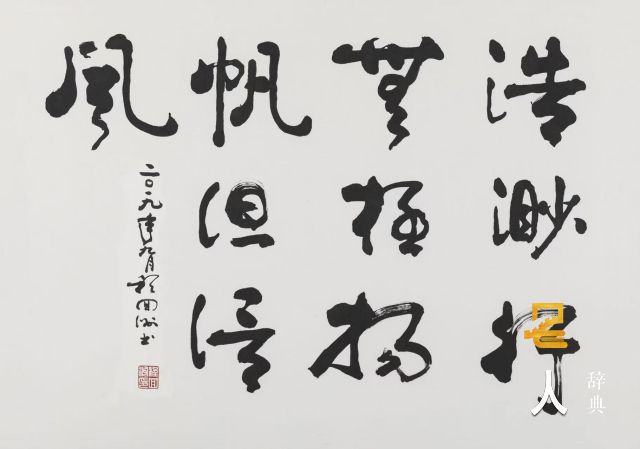 浩渺行
無極揚
帆但信
風
二〇一九年九月程书
名人
辞典